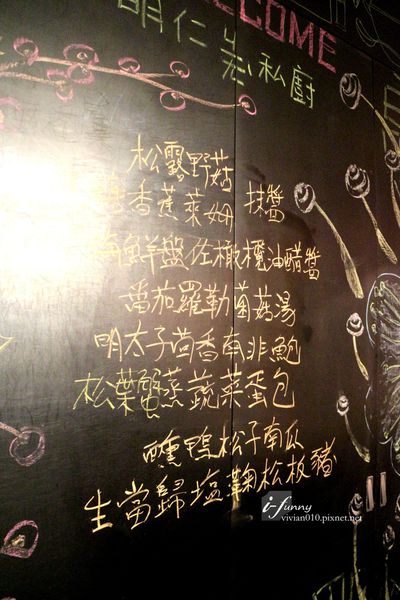 WELCOME
明仁先私廚
松露野菇
香蕉萊姆 抹醬
海鮮盤佐橄欖油醋醬
番茄羅勒蘑菇湯
明太子茴香百非鮑
松葉蟹燕蔬菜蛋包
醺鴨松子南瓜
生當歸塩麴松板豬
i-funny
vivian010.pixnet.net